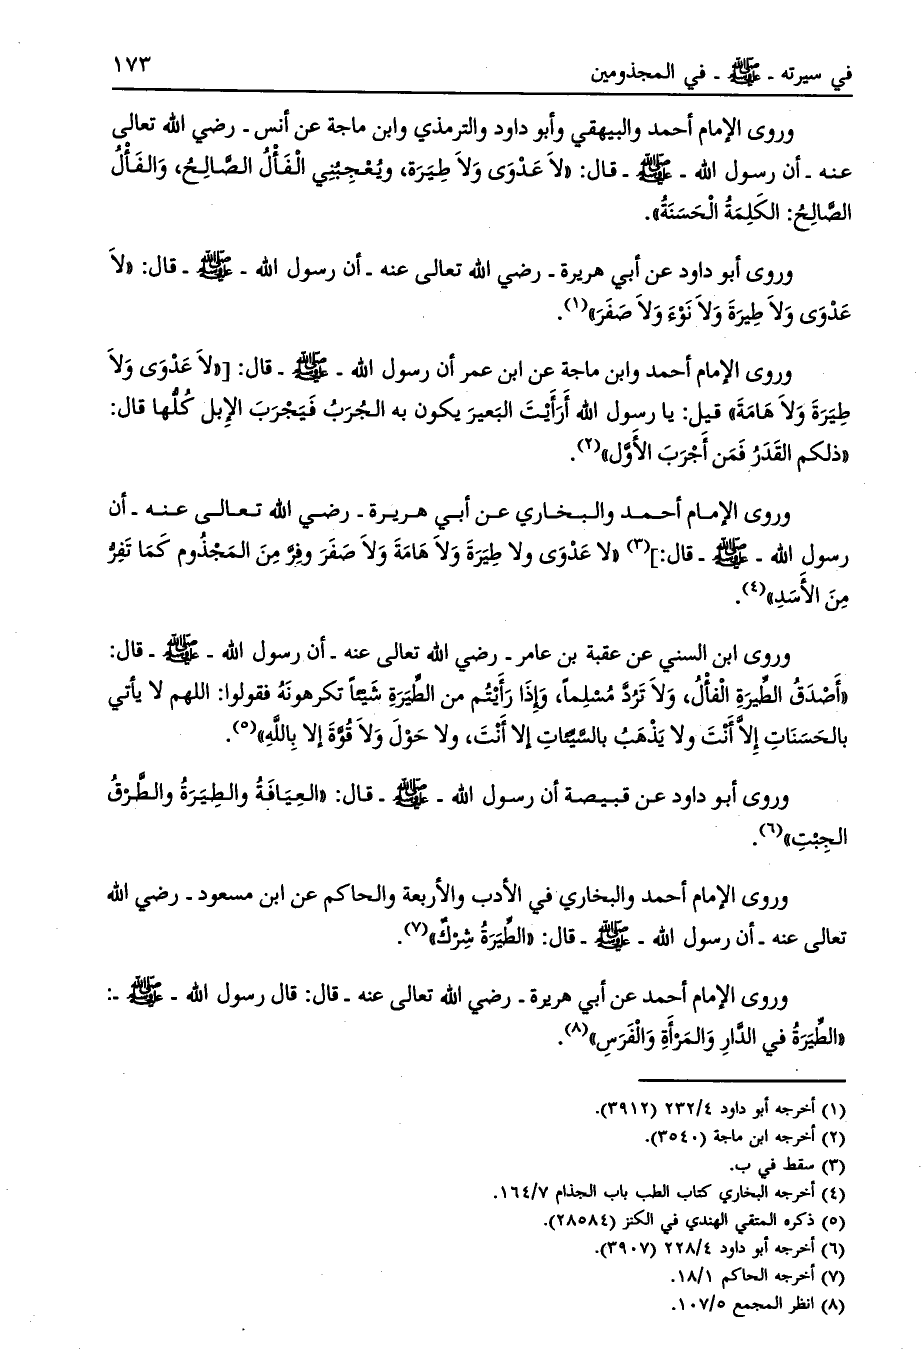 في سيرته ـ ﷺ ـ في المجذومين ١٧٣
وروى الإمام أحمد والبيهقي وأبو داود والترمذي وابن ماجة عن أنس ـ رضي الله تعالى
عنه ـ أن رسول الله ـ ﷺ ـ قال: «لاَ عَدْوَى وَلاَ طِيَرَة، ويُعْجِبُنِي الْفَأْلُ الصَّالِحُ، وَالفَأْلُ
الصَّالِحُ: الكَلِمَةُ الْحَسَنَةُ».
وروى أبو داود عن أبي هريرة ـ رضي الله تعالى عنه ـ أن رسول الله ـ ﷺ ـ قال: «لاَ
عَدْوَى وَلاَ طِيرَةَ وَلاَ نَوْءَ وَلاَ صَفَرَ»(١).
وروى الإمام أحمد وابن ماجة عن ابن عمر أن رسول الله ـ ﷺ ـ قال: [«لاَ عَدْوَى وَلاَ
طِيَرَةَ وَلاَ هَامَةَ» قيل: يا رسول الله أَرَأَيْتَ البَعيرَ يكون به الجُرَبُ فَيَجْرَبَ الإِبل كُلُّها قال:
«ذلكم القَدَرُ فَمَن أَجْرَبَ الأَوَّل»(٢).
وروى الإمام أحمد والبخاري عن أبي هريرة ـ رضي الله تعالى عنه ـ أن
رسول الله ـ ﷺ ـ قال:](٣) «لا عَدْوَى ولا طِيَرَةَ وَلاَ هَامَةَ وَلاَ صَفَرَ وفِرَّ مِنَ المَجْذُوم كَمَا تَفِرُّ
مِنَ الأَسَدِ»(٤).
وروى ابن السني عن عقبة بن عامر ـ رضي الله تعالى عنه ـ أن رسول الله ـ ﷺ ـ قال:
«أَصْدَقُ الطِّيرَةِ الْفأْلُ، وَلاَ تَرُدَّ مُسْلِماً، وَإِذَا رَأَيْتُم من الطِّيَرَةِ شَيْئاً تكرهونَهُ فقولوا: اللهم لا يأتي
بالحَسَنَاتِ إِلاَّ أَنْتَ ولا يَذْهَبُ بالسَّيِّئاتِ إلا أَنْتَ، ولا حَوْلَ وَلاَ قُوَّةَ إلا بِاللَّهِ»(٥).
وروى أبو داود عن قبيصة أن رسول الله ـ ﷺ ـ قال: «العِيَافَةُ والطِيَرَةُ والطَّرْقُ
الجِبْتِ»(٦).
وروى الإمام أحمد والبخاري في الأدب والأربعة والحاكم عن ابن مسعود ـ رضي الله
تعالى عنه ـ أن رسول الله ـ ﷺ ـ قال: «الطِّيَرَةُ شِرْكٌ»(٧).
وروى الإمام أحمد عن أبي هريرة ـ رضي الله تعالى عنه ـ قال: قال رسول الله ـ ﷺ ـ:
«الطِّيَرَةُ في الدَّارِ وَالمَرْأَةِ وَالْفَرَسِ»(٨).
(١) أخرجه أبو داود ٢٣٢/٤ (٣٩١٢).
(٢) أخرجه ابن ماجة (٣٥٤٠).
(٣) سقط في ب.
(٤) أخرجه البخاري كتاب الطب باب الجذام ١٦٤/٧.
(٥) ذكره المتقي الهندي في الكنز (٢٨٥٨٤).
(٦) أخرجه أبو داود ٢٢٨/٤ (٣٩٠٧).
(٧) أخرجه الحاكم ١٨/١.
(٨) انظر المجمع ١٠٧/٥.